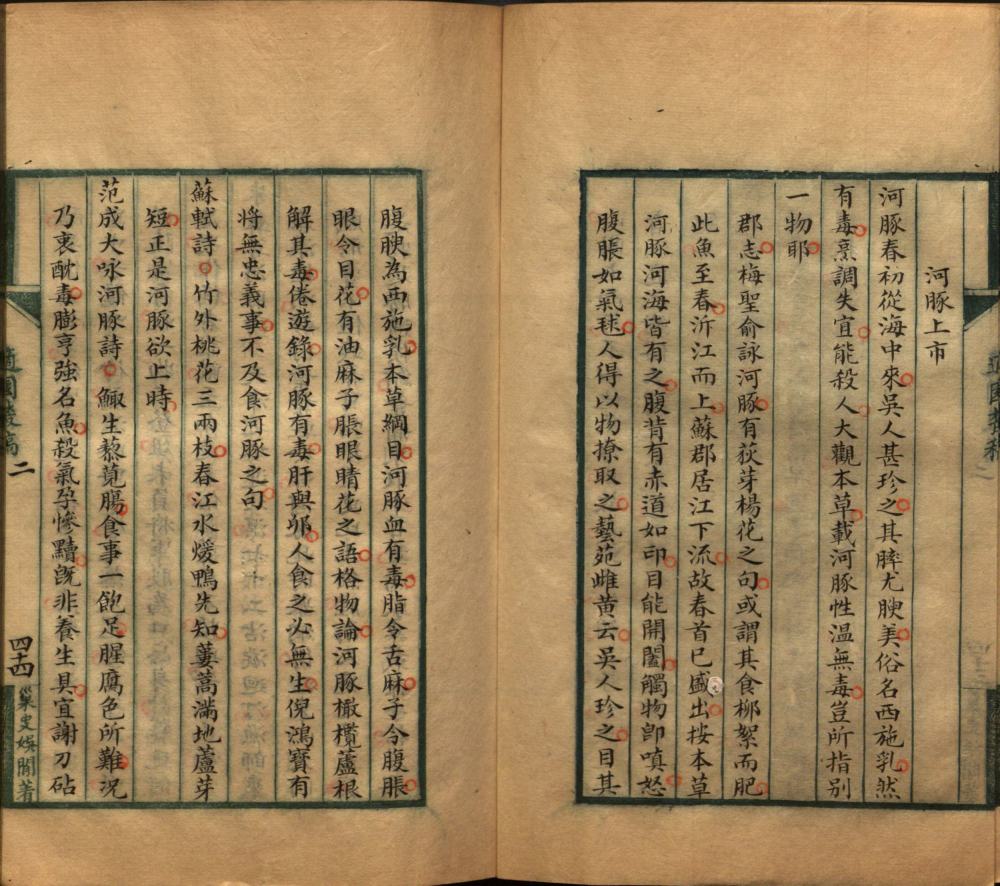 河豚上市
河豚春初從海中來吳人甚珍之其膵尤腴美俗名西施乳然
有毒烹調失宜能殺人大觀本草載河豚性溫無毒豈所指別
一物耶
郡志梅聖俞詠河豚有荻芽楊花之句或謂其食柳絮而肥
此魚至春泝江而上蘇郡居江下流故春首已盛出按本草
河豚河海皆有之腹背有赤道如印目能開闔觸物卽嗔怒
腹脹如氣毬人得以物撩取之藝苑雌黃云吳人珍之目其
腹腴為西施乳本草綱目河豚血有毒脂令舌麻子令腹脹
眼令目花有油麻子脹眼睛花之語格物論河豚橄欖蘆根
解其毒倦遊錄河豚有毒肝與卵人食之必無生倪鴻寶有
將無忠義事不及食河豚之句
蘇軾詩竹外桃花三兩枝春江水煖鴨先知蔞蒿滿地蘆芽
短正是河豚欲上時
范成大咏河豚詩鯫生藜莧腸食事一飽足腥腐色所難況
乃衷酖毒膨亨強名魚殺氣孕慘黷旣非養生具宜謝刀砧
二
四十四
巢史娛閒著